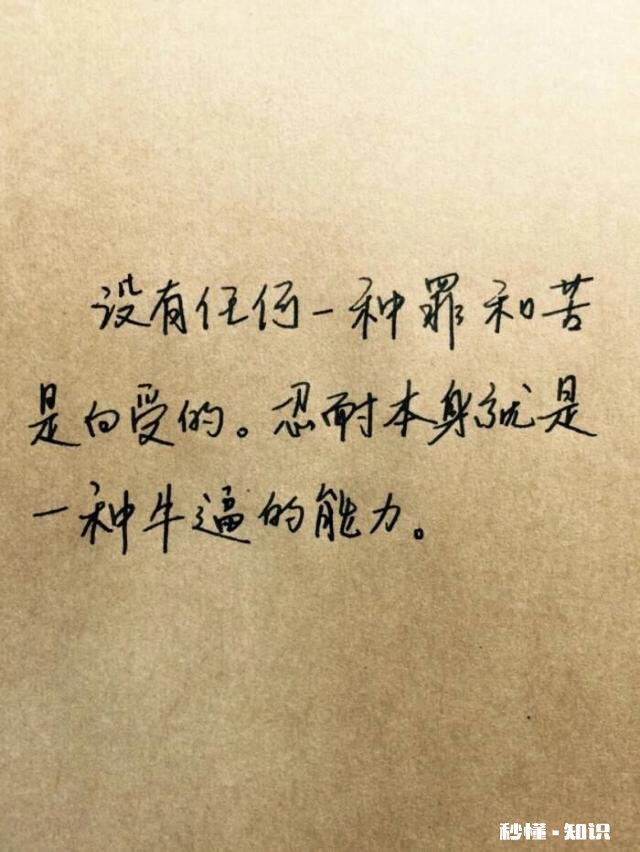 没有任何一种罪和苦
是白受的。忍耐本身就是
一种牛逼的能力。
秒懂·知识